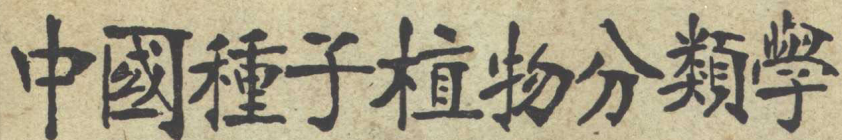 中國種子植物分類學